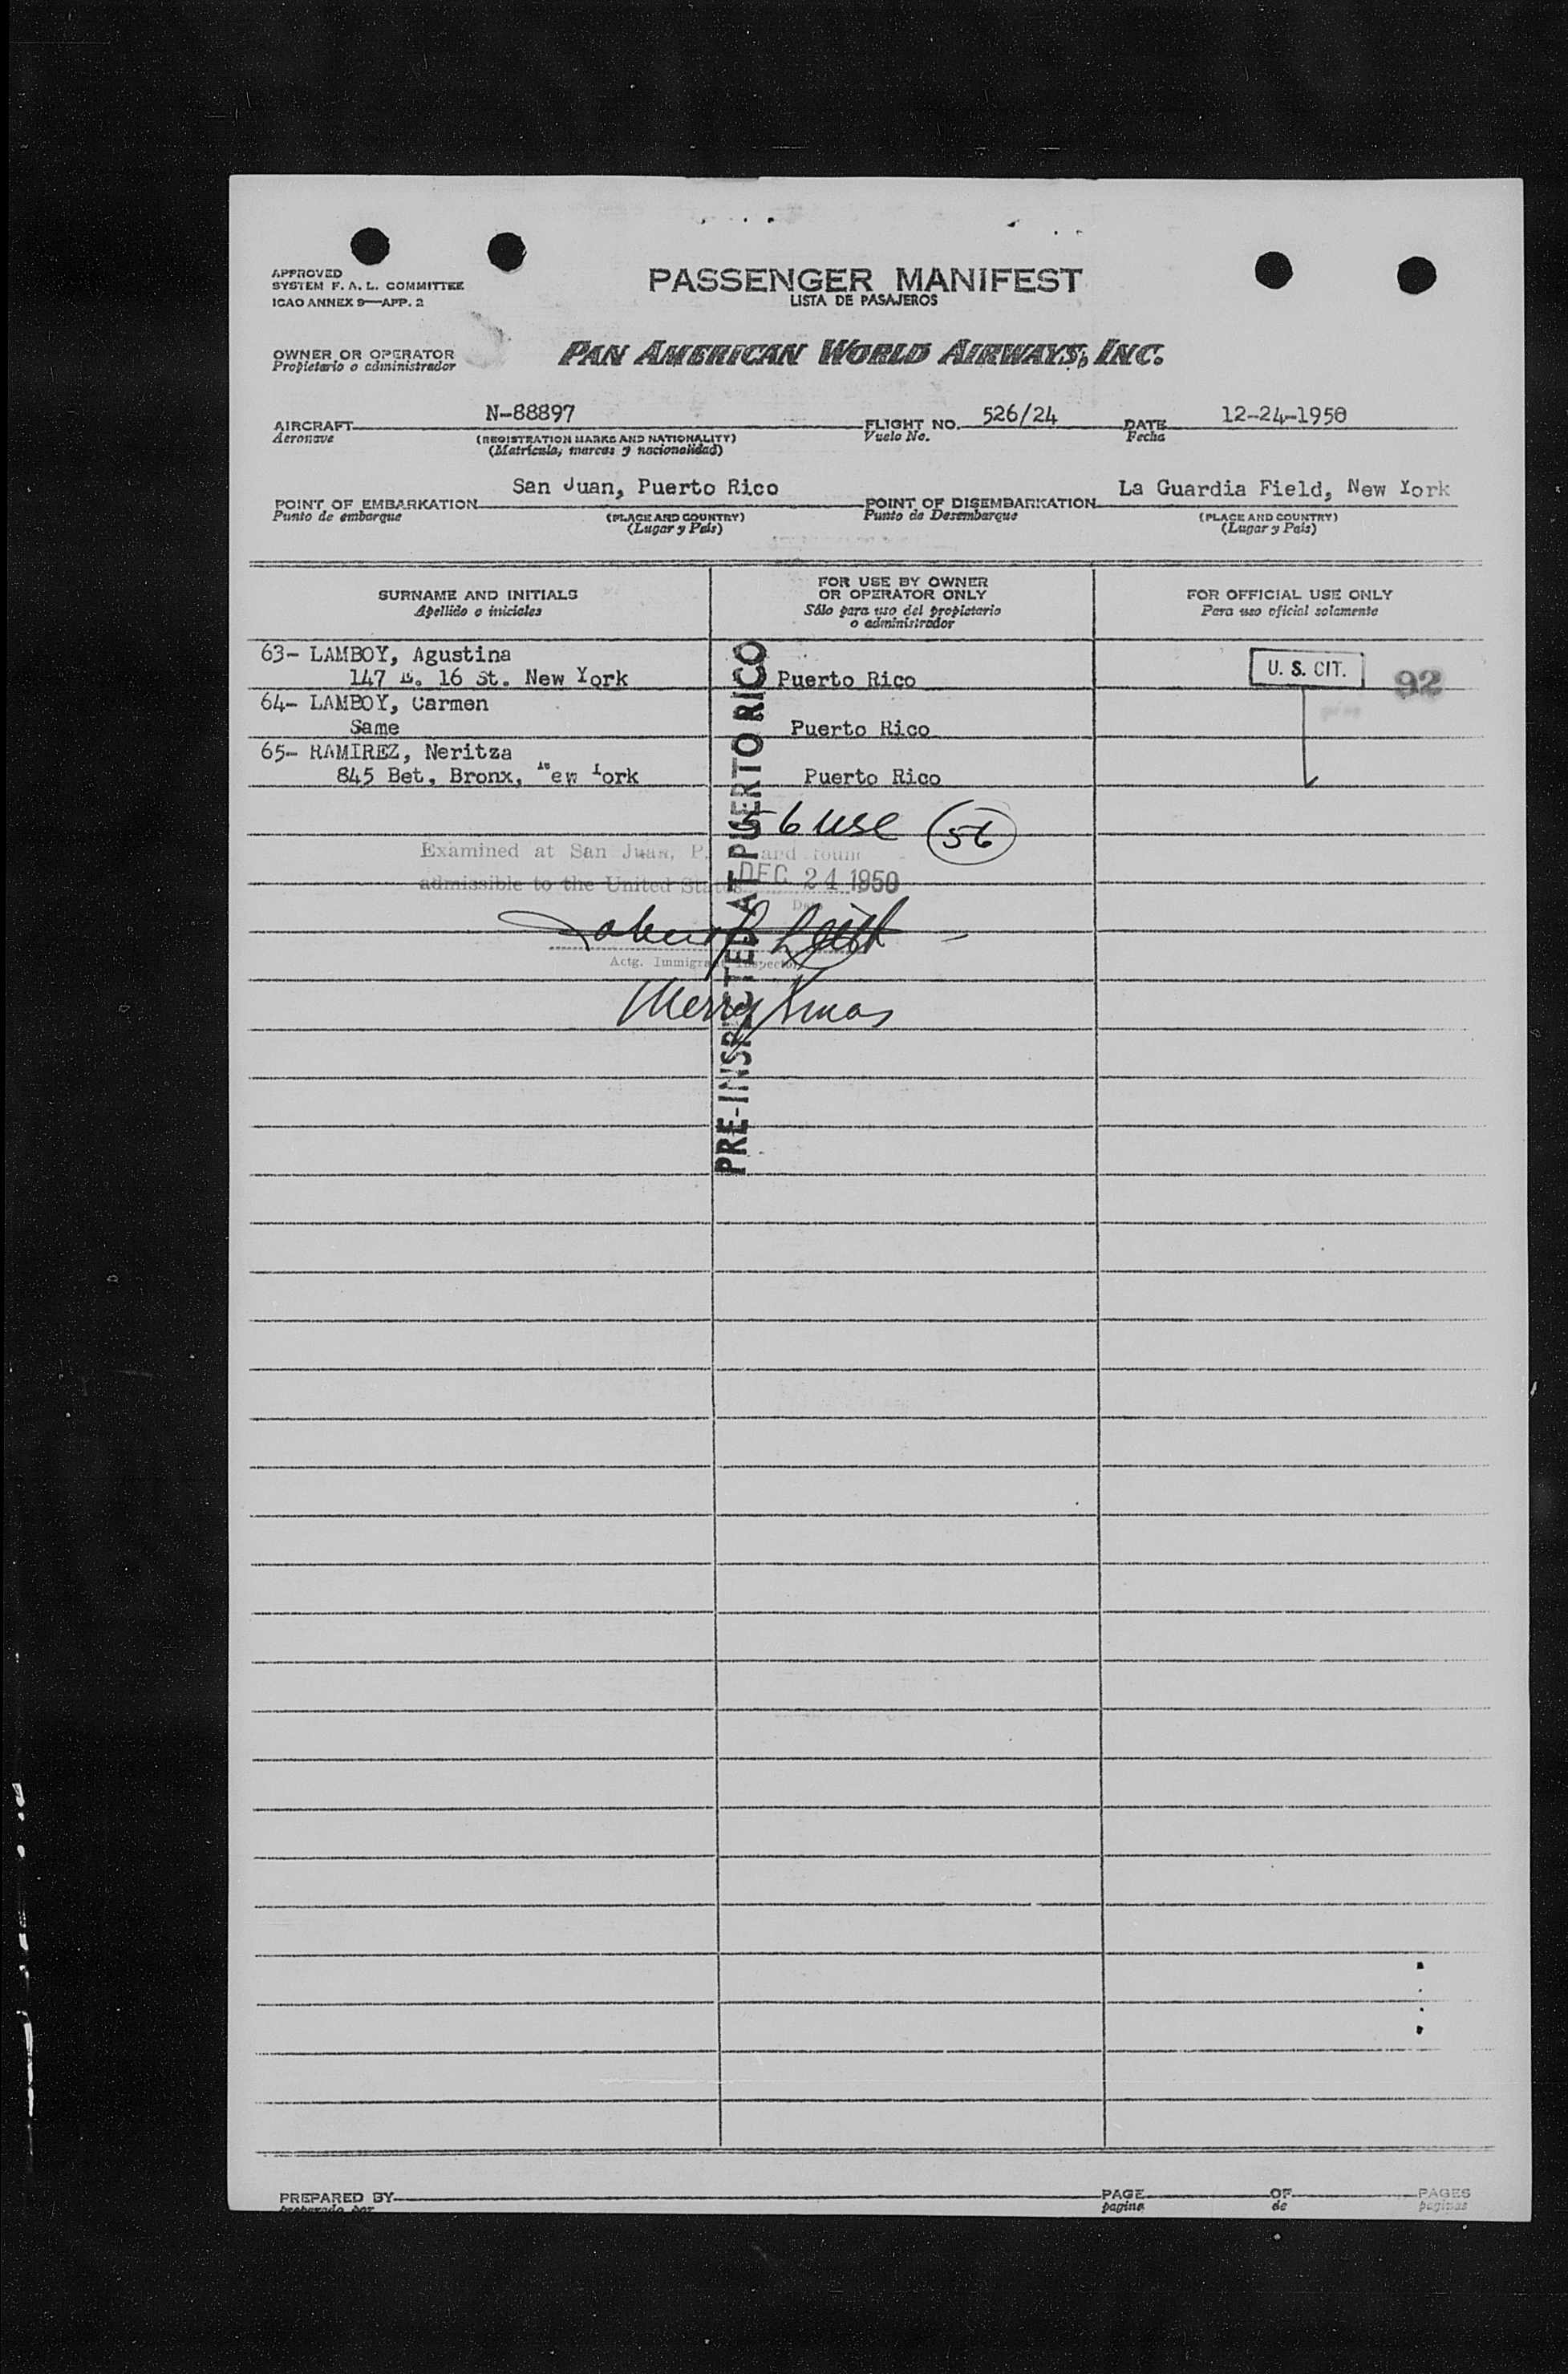 APPROVED
SYSTEM F. A. L. COMMITTEE
ICAO ANNEX 9—APP. 2
PASSENGER MANIFEST
LISTA DE PASAJEROS
OWNER OR OPERATOR
Propietario o administrador
PAN AMERICAN WORLD AIRWAYS, INC.
AIRCRAFT N-88897 FLIGHT NO. 526/24 DATE 12-24-1950
Aeronave (REGISTRATION MARKS AND NATIONALITY) Vuelo No. Fecha
(Matrícula, marcas y nacionalidad)
POINT OF EMBARKATION San Juan, Puerto Rico POINT OF DISEMBARKATION La Guardia Field, New York
Punto de embarque (PLACE AND COUNTRY) Punto de Desembarque (PLACE AND COUNTRY)
(Lugar y País) (Lugar y País)
SURNAME AND INITIALS
Apellido o iniciales
FOR USE BY OWNER
OR OPERATOR ONLY
Sólo para uso del propietario
o administrador
FOR OFFICIAL USE ONLY
Para uso oficial solamente
63- LAMBOY, Agustina
147 E. 16 St. New York Puerto Rico U. S. CIT. 92
64- LAMBOY, Carmen
Same Puerto Rico
65- RAMIREZ, Neritza
845 Bet, Bronx, New York Puerto Rico
PRE-INSPECTED AT PUERTO RICO
56 USC 56
Examined at San Juan, P. and found
admissible to the United States DEC 24 1950
Date
Actg. Immigrant Inspector
Merry Xmas
PREPARED BY PAGE OF PAGES
preparado por pagina de paginas